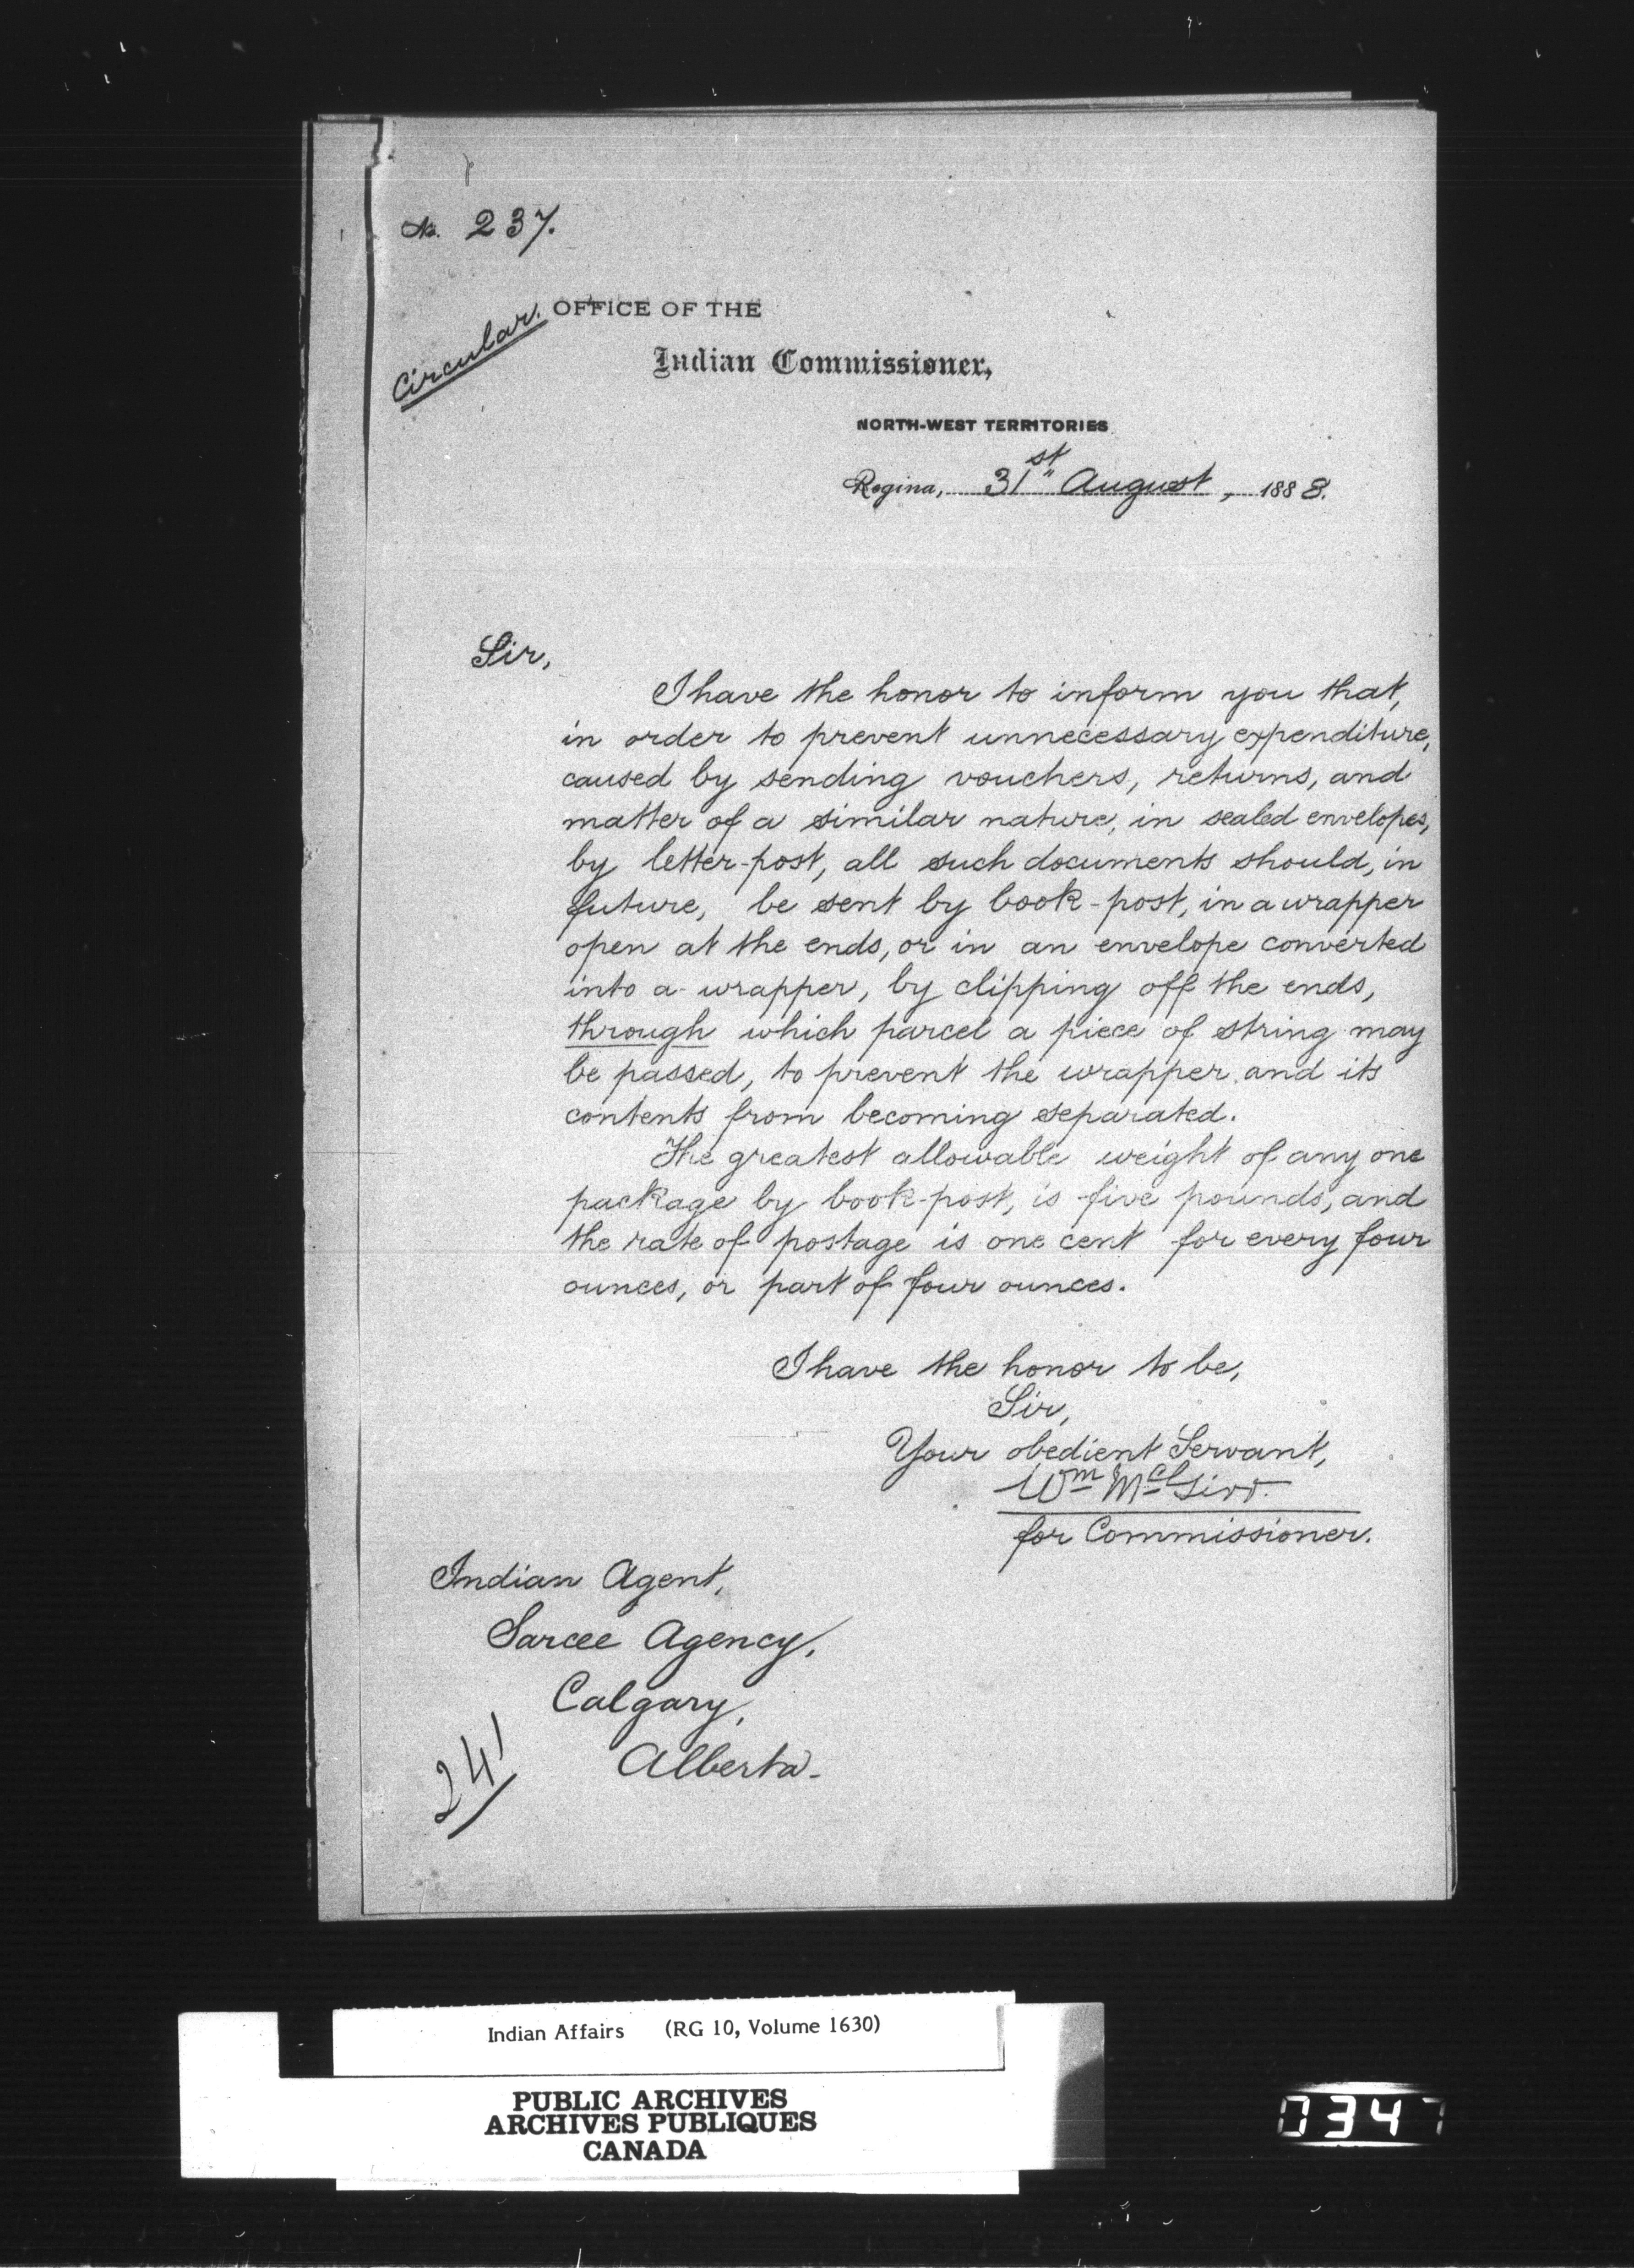 No. 237.
Circular.
OFFICE OF THE
Indian Commissioner,
NORTH-WEST TERRITORIES
Regina, 31st August, 1888.
Sir,
I have the honor to inform you that,
in order to prevent unnecessary expenditure,
caused by sending vouchers, returns, and
matter of a similar nature, in sealed envelopes,
by letter-post, all such documents should, in
future, be sent by book-post, in a wrapper
open at the ends, or in an envelope converted
into a wrapper, by clipping off the ends,
through which parcel a piece of string may
be passed, to prevent the wrapper and its
contents from becoming separated.
The greatest allowable weight of any one
package by book-post, is five pounds, and
the rate of postage is one cent for every four
ounces, or part of four ounces.
I have the honor to be,
Sir,
Your obedient Servant,
Wm McGirr.
for Commissioner.
Indian Agent,
Sarcee Agency,
Calgary,
Alberta-
241
Indian Affairs (RG 10, Volume 1630)
PUBLIC ARCHIVES
ARCHIVES PUBLIQUES
CANADA
0347